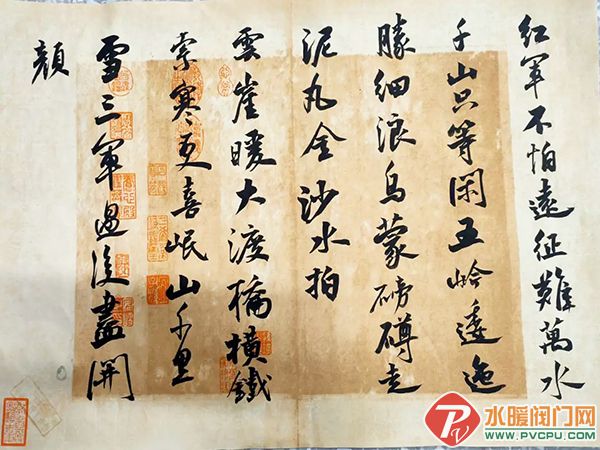 红軍不怕遠征難萬水
千山只等閑五岭逶迤
騰細浪烏蒙磅礴走
泥丸金沙水拍
雲崖暖大渡橋橫鐵
索寒更喜岷山千里
雪三軍過後盡開
顏
水暖阀门网
WWW.PVCPU.COM